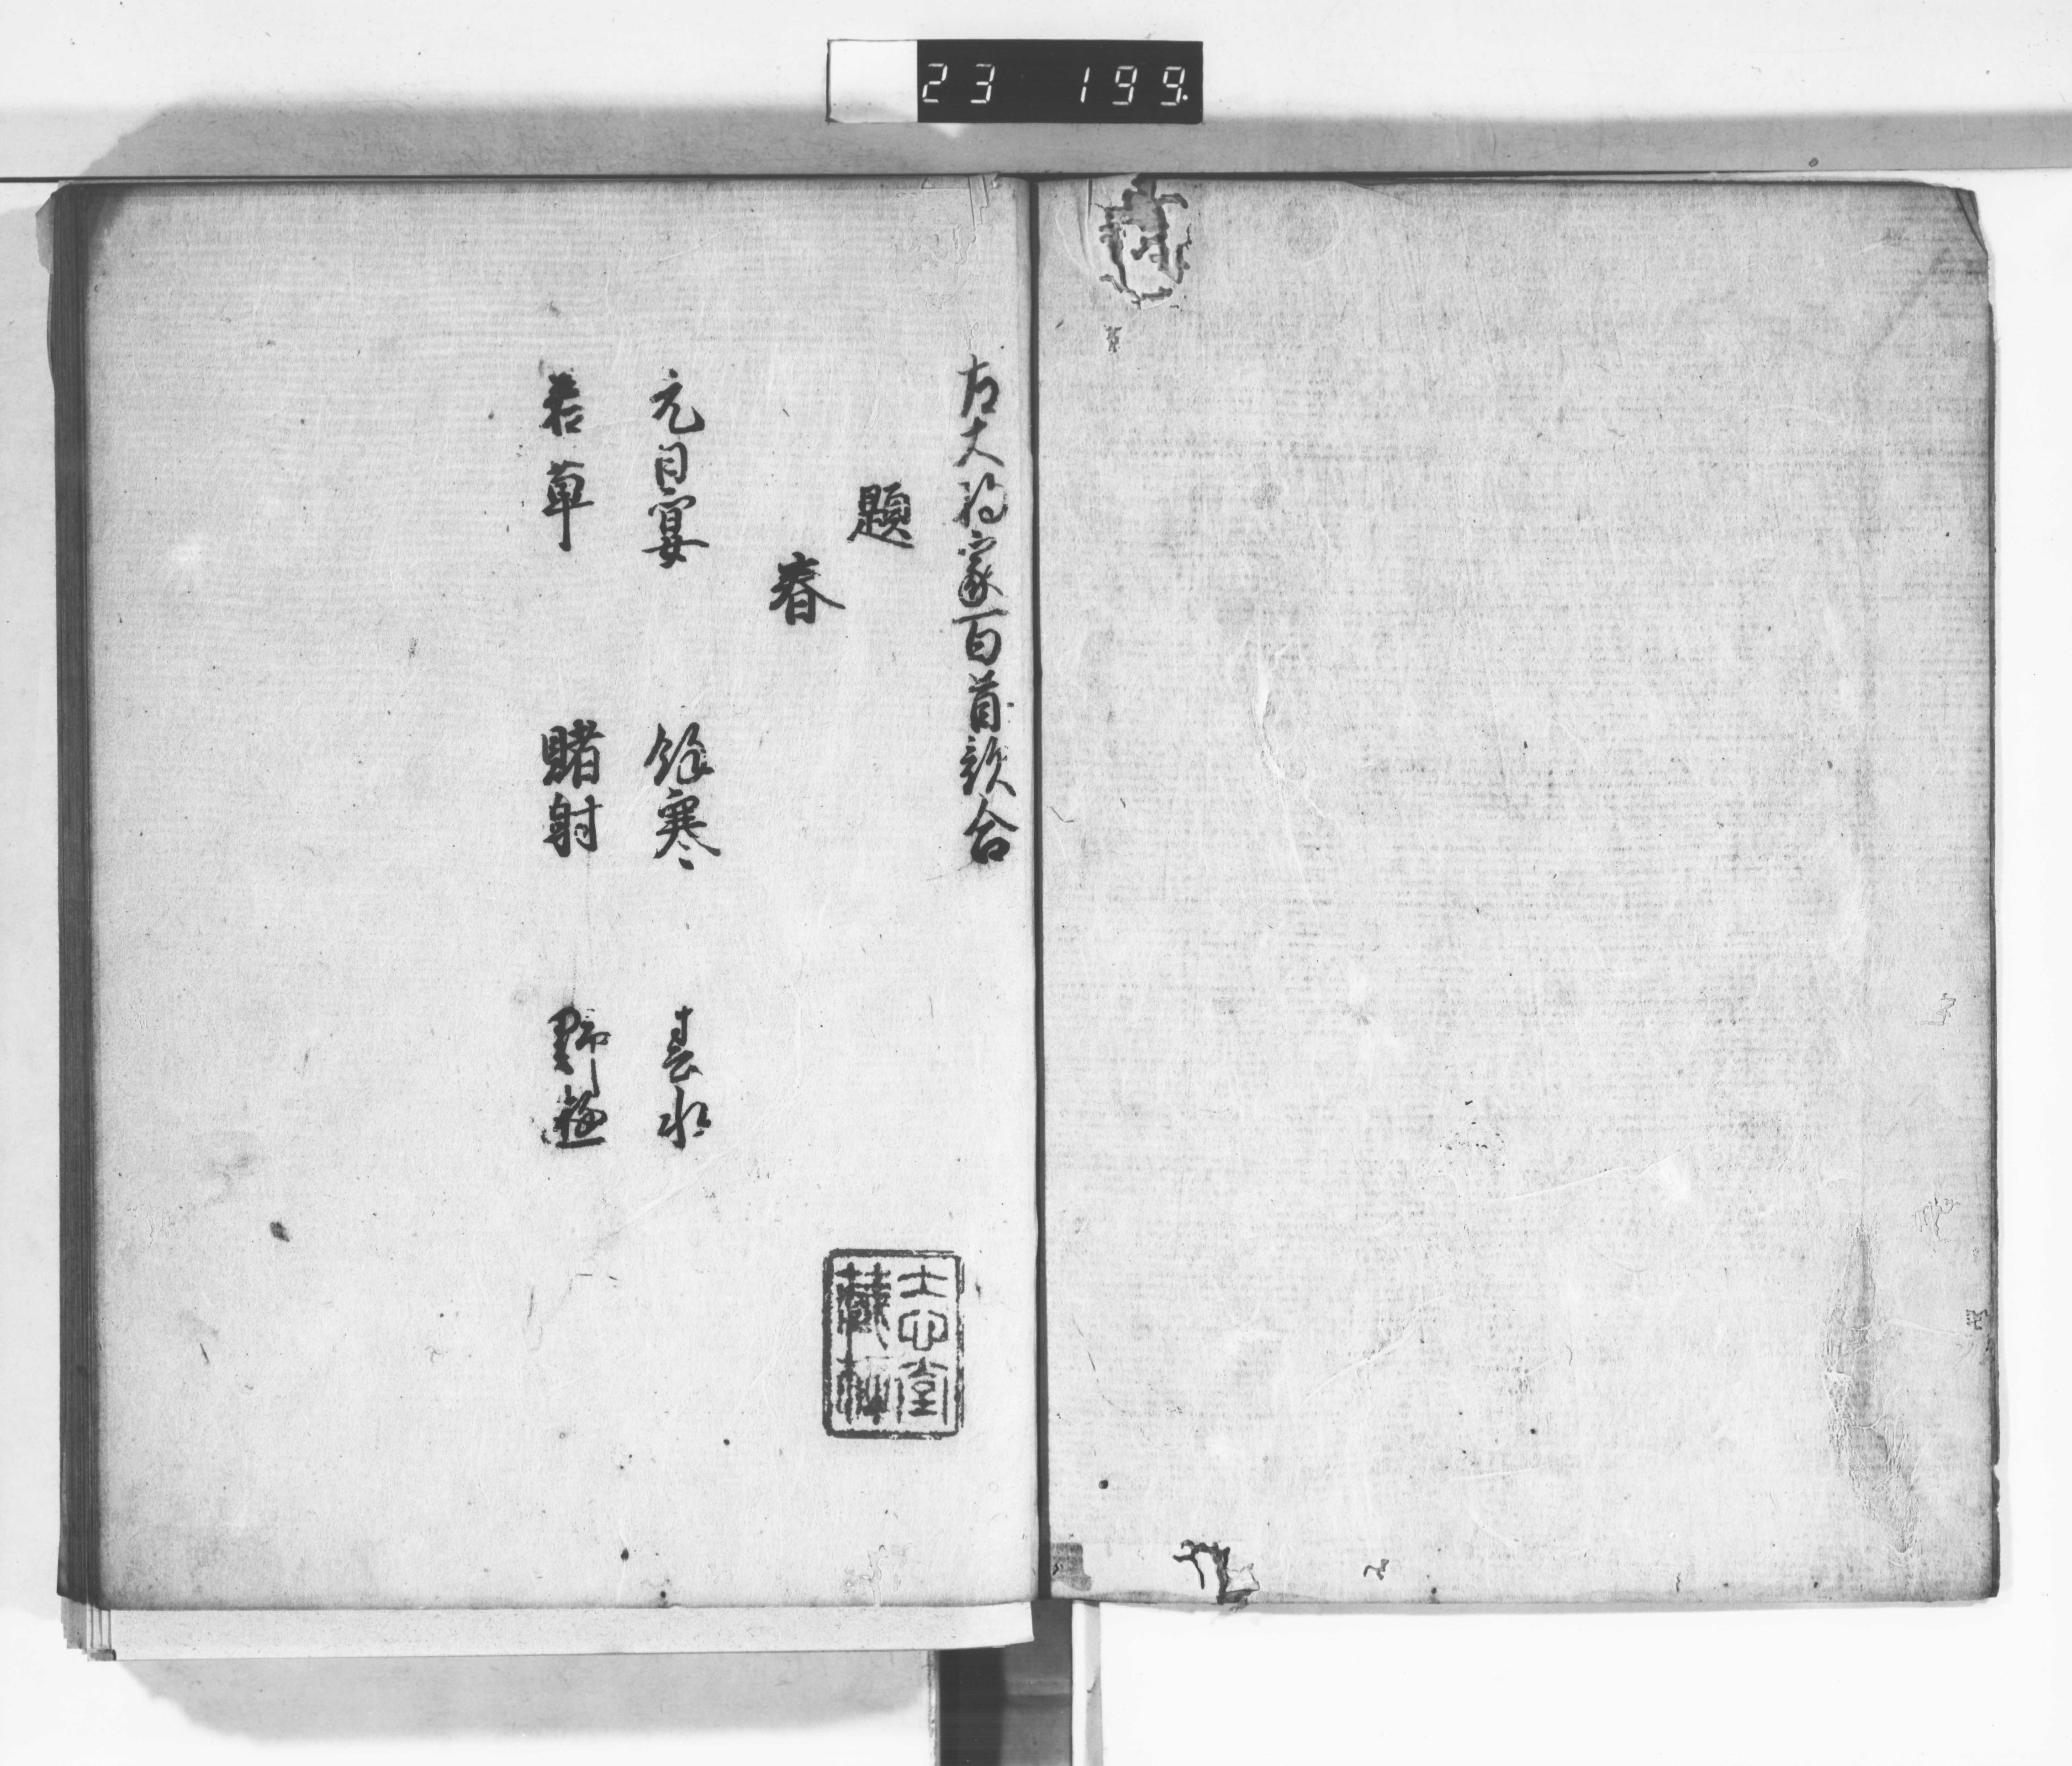 23 199
左大将家百首歌合
題
春
元日宴 餘寒 春水
若草 賭射 野遊